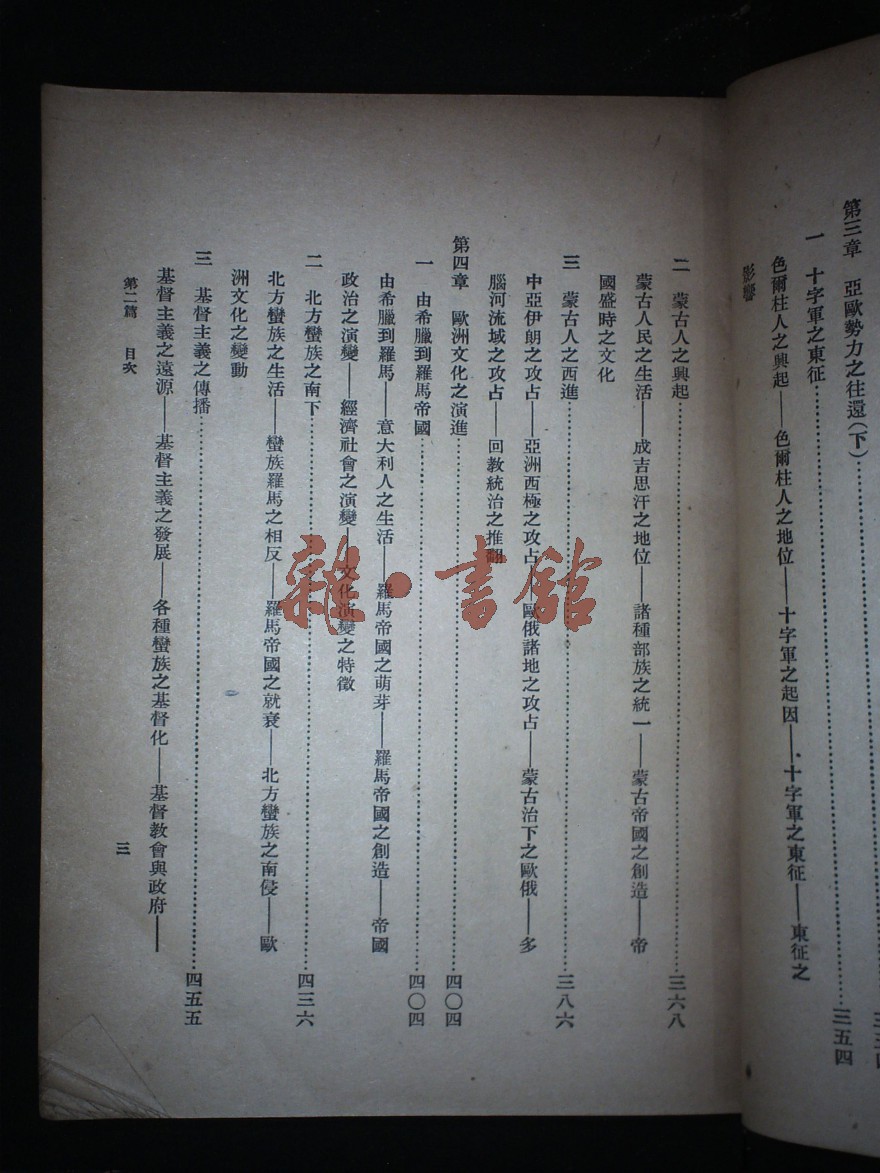 第三章　亞歐勢力之往還(下)
一　十字軍之東征……三五四
色爾柱人之興起——色爾柱人之地位——十字軍之起因——十字軍之東征——東征之
影響
二　蒙古人之興起……三六八
蒙古人民之生活——成吉思汗之地位——諸種部族之統一——蒙古帝國之創造——帝
國盛時之文化
三　蒙古人之西進……三八六
中亞伊朗之攻占——亞洲西極之攻占——歐俄諸地之攻占——蒙古治下之歐俄——多
腦河流域之攻占——回教統治之推翻
第四章　歐洲文化之演進……四〇四
一　由希臘到羅馬帝國……四〇四
由希臘到羅馬——意大利人之生活——羅馬帝國之萌芽——羅馬帝國之創造——帝國
政治之演變——經濟社會之演變——文化演變之特徵
二　北方蠻族之南下……四三六
北方蠻族之生活——蠻族羅馬之相反——羅馬帝國之就衰——北方蠻族之南侵——歐
洲文化之變動
三　基督主義之傳播……四五五
基督主義之遠源——基督主義之發展——各種蠻族之基督化——基督教會與政府——
第二篇　目次
三
雜·書館